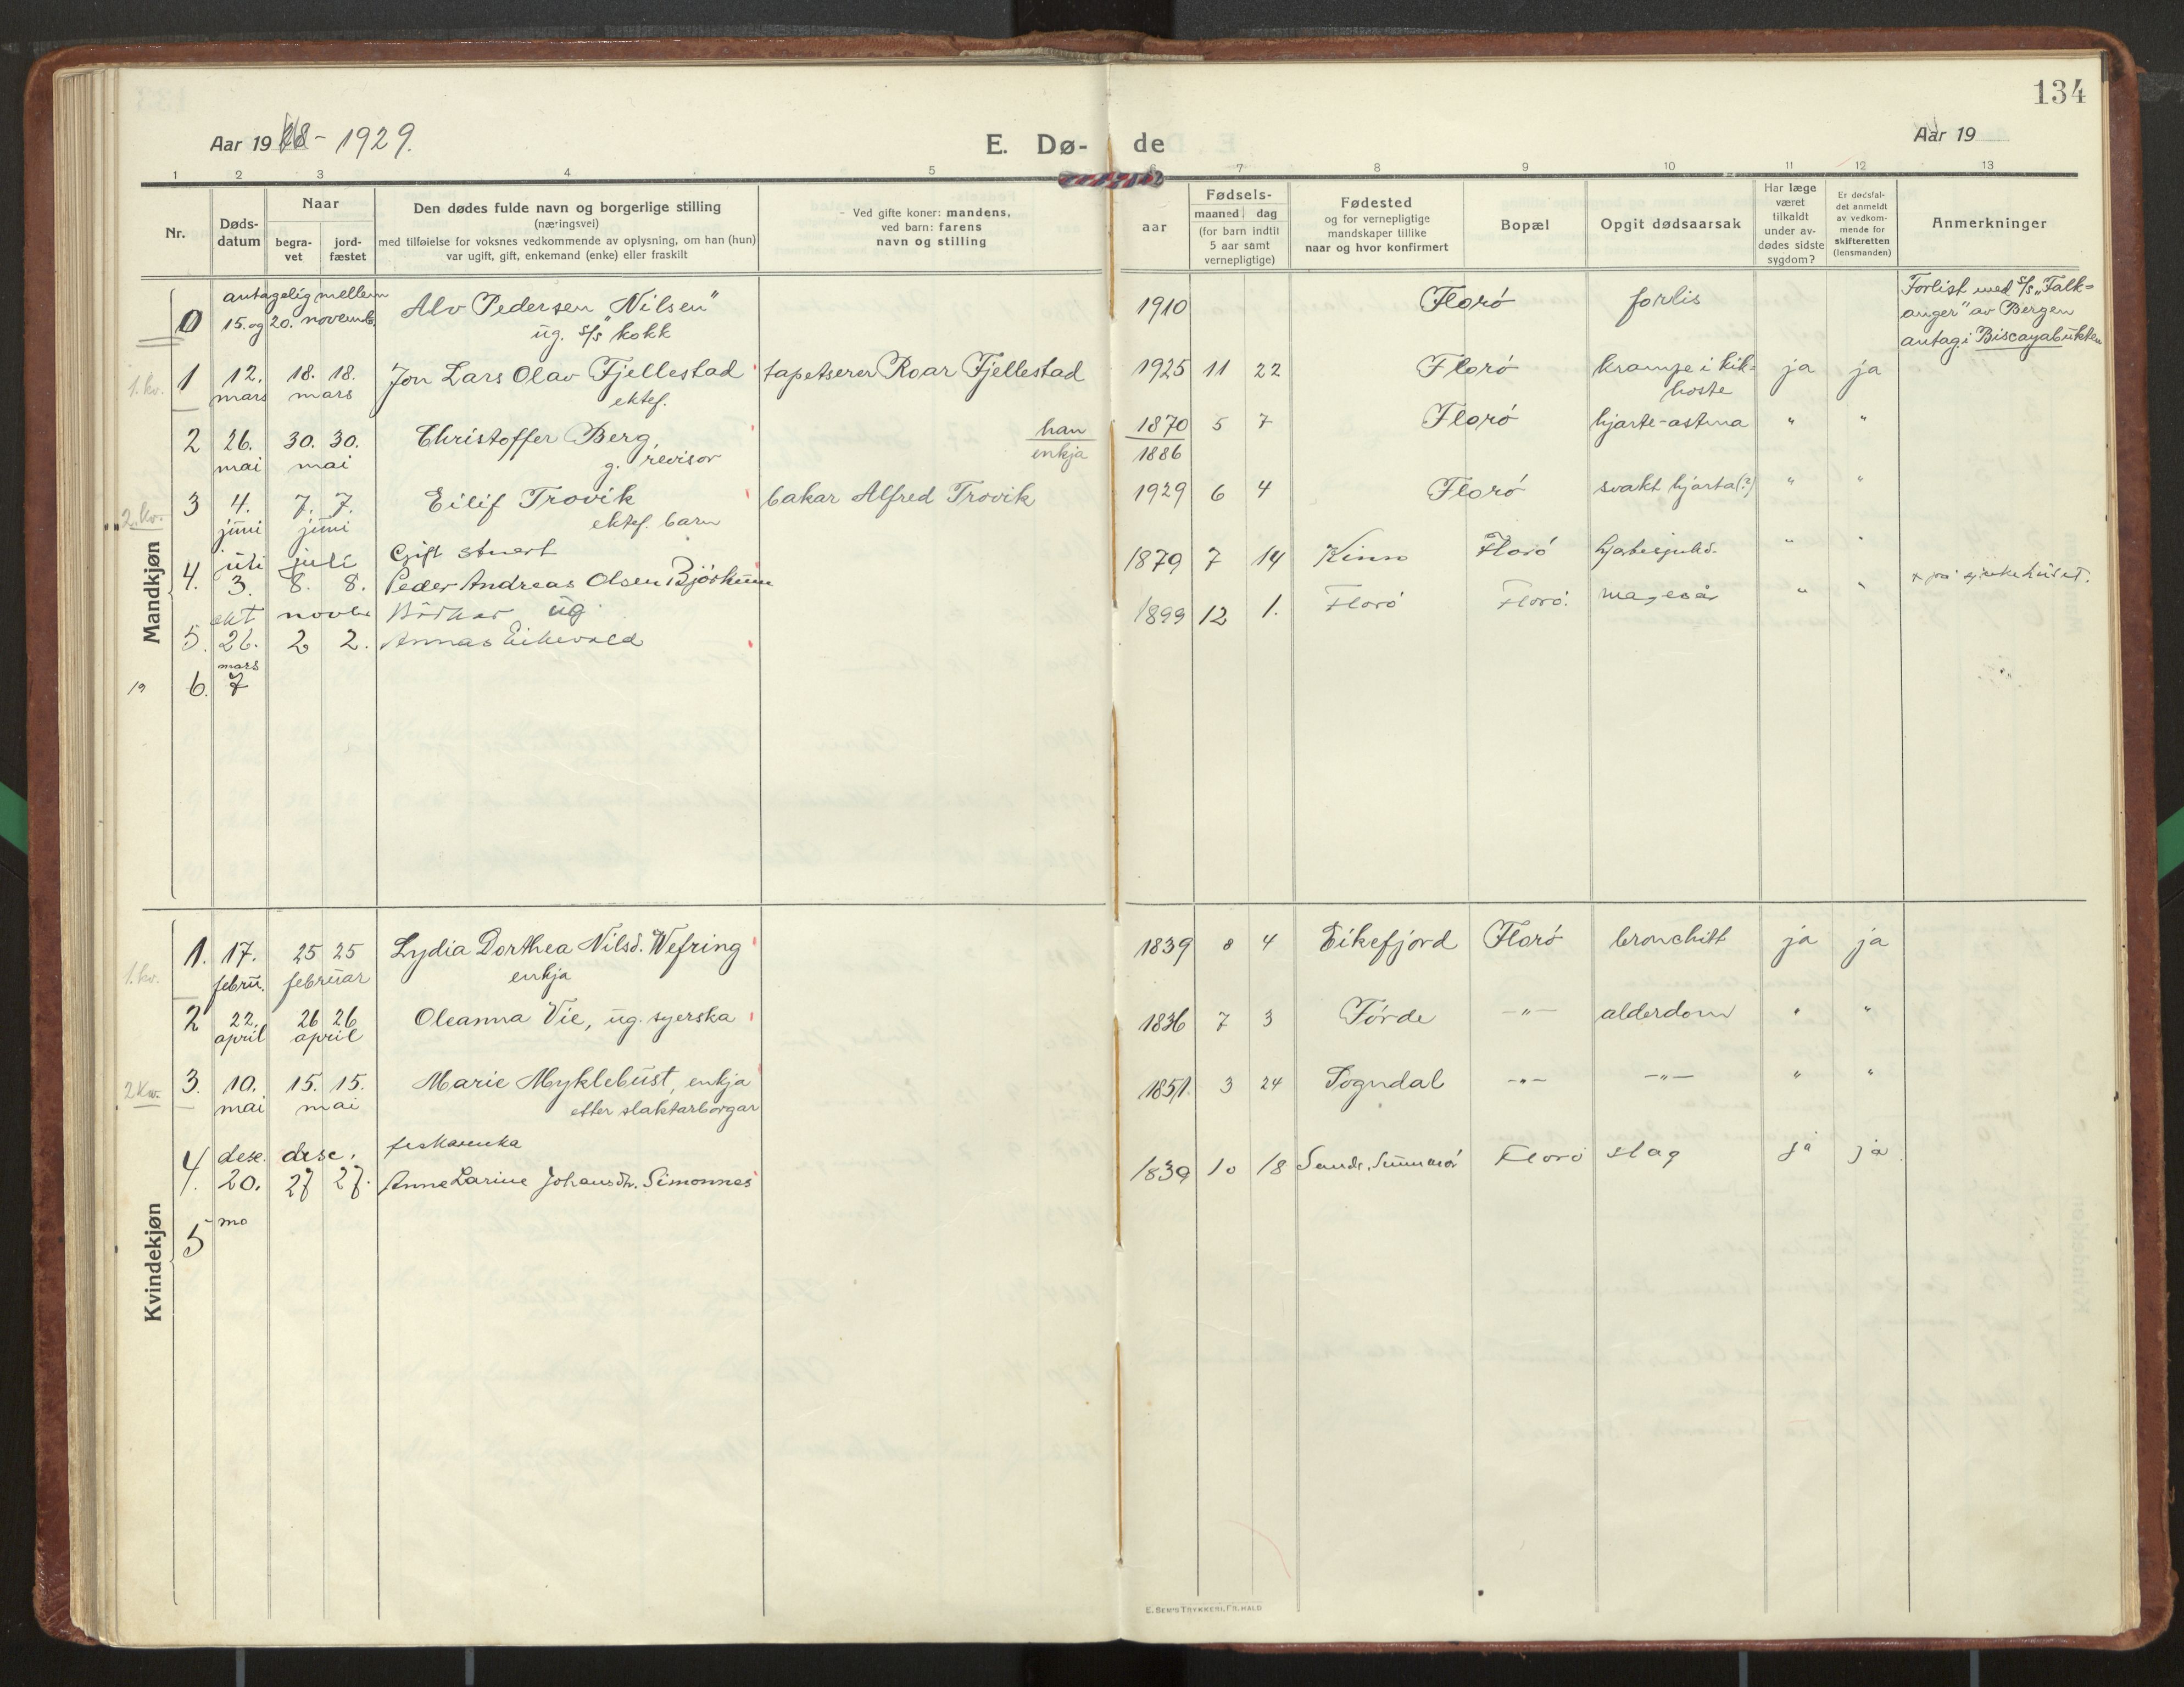 134
Aar 19 28 - 1929.
E. Dø- de
Aar 19
1 2 3 4 5 6 7 8 9 10 11 12 13
Nr.
Døds-
datum
Naar
begra-
vet
jord-
fæstet
Den dødes fulde navn og borgerlige stilling
(næringsvei)
med tilføielse for voksnes vedkommende av oplysning, om han (hun)
var ugift, gift, enkemand (enke) eller fraskilt
Ved gifte koner: mandens,
ved barn: farens
navn og stilling
Fødsels-
aar
maaned dag
(for barn indtil
5 aar samt
vernepligtige)
Fødested
og for vernepligtige
mandskaper tillike
naar og hvor konfirmert
Bopæl
Opgit dødsaarsak
Har læge
været
tilkaldt
under av-
dødes sidste
sygdom?
Er dødsfal-
det anmeldt
av vedkom-
mende for
skifteretten
(lensmanden)
Anmerkninger
Mandkjøn
0 antagelig mellem
15. og 20. novemb.
Alv Pedersen "Nilsen"
ug. s/s kokk
1910 Florø forlis
Forlist med s/s "Falk-
anger" av Bergen
antag. i Biscayabukten
1. kv.
1 12. 18. 18. Jon Lars Olav Fjellestad tapetserer Roar Fjellestad 1925 11 22 Florø krampe i kik- ja ja
mars mars ektef. hoste
2 26. 30. 30. Christoffer Berg, han 1870 5 7 Florø hjarte-astma " "
mai mai g. revisor enkja 1886
2. kv.
3 4. 7. 7. Eilif Trovik bakar Alfred Trovik 1929 6 4 Florø svakt hjarta (?) " "
juni juni ektef. barn
juli juli Gift stuert
4. 3. 8. 8. Peder Andreas Olsen Bjørkum 1879 7 14 Kinn Florø hjartesjukd. " "
okt novbr Bødkar ug.
5. 26. 2 2. Annas Eikevold 1899 12 1. Florø Florø. magesår " " + på sjukehuset.
mars
6. 7
Kvindekjøn
1. kv.
1. 17. 25 25 Lydia Dorthea Nilsd. Wefring 1839 8 4 Eikefjord Florø bronchitt ja ja
febru. februar enkja
2 22. 26 26 Oleanna Vie, ug. syerska 1836 7 3 Førde -"- alderdom " "
april april
2 kv.
3. 10. 15. 15. Marie Myklebust, enkja 1851 3 24 Sogndal -"- -"- " "
mai mai etter slaktarborgar
dese. dese. feskarenka
4. 20. 27 27. Anne Larine Johansdtr. Simonnes 1839 10 18 Sande, Sunnmør Florø slag ja ja
5 ma
E. SEM'S TRYKKERI, FR.HALD